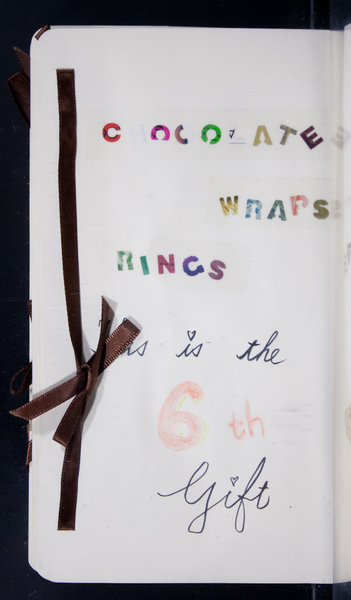 CHOCOLATE
WRAPS
RINGS
is is the
6 th
Gift